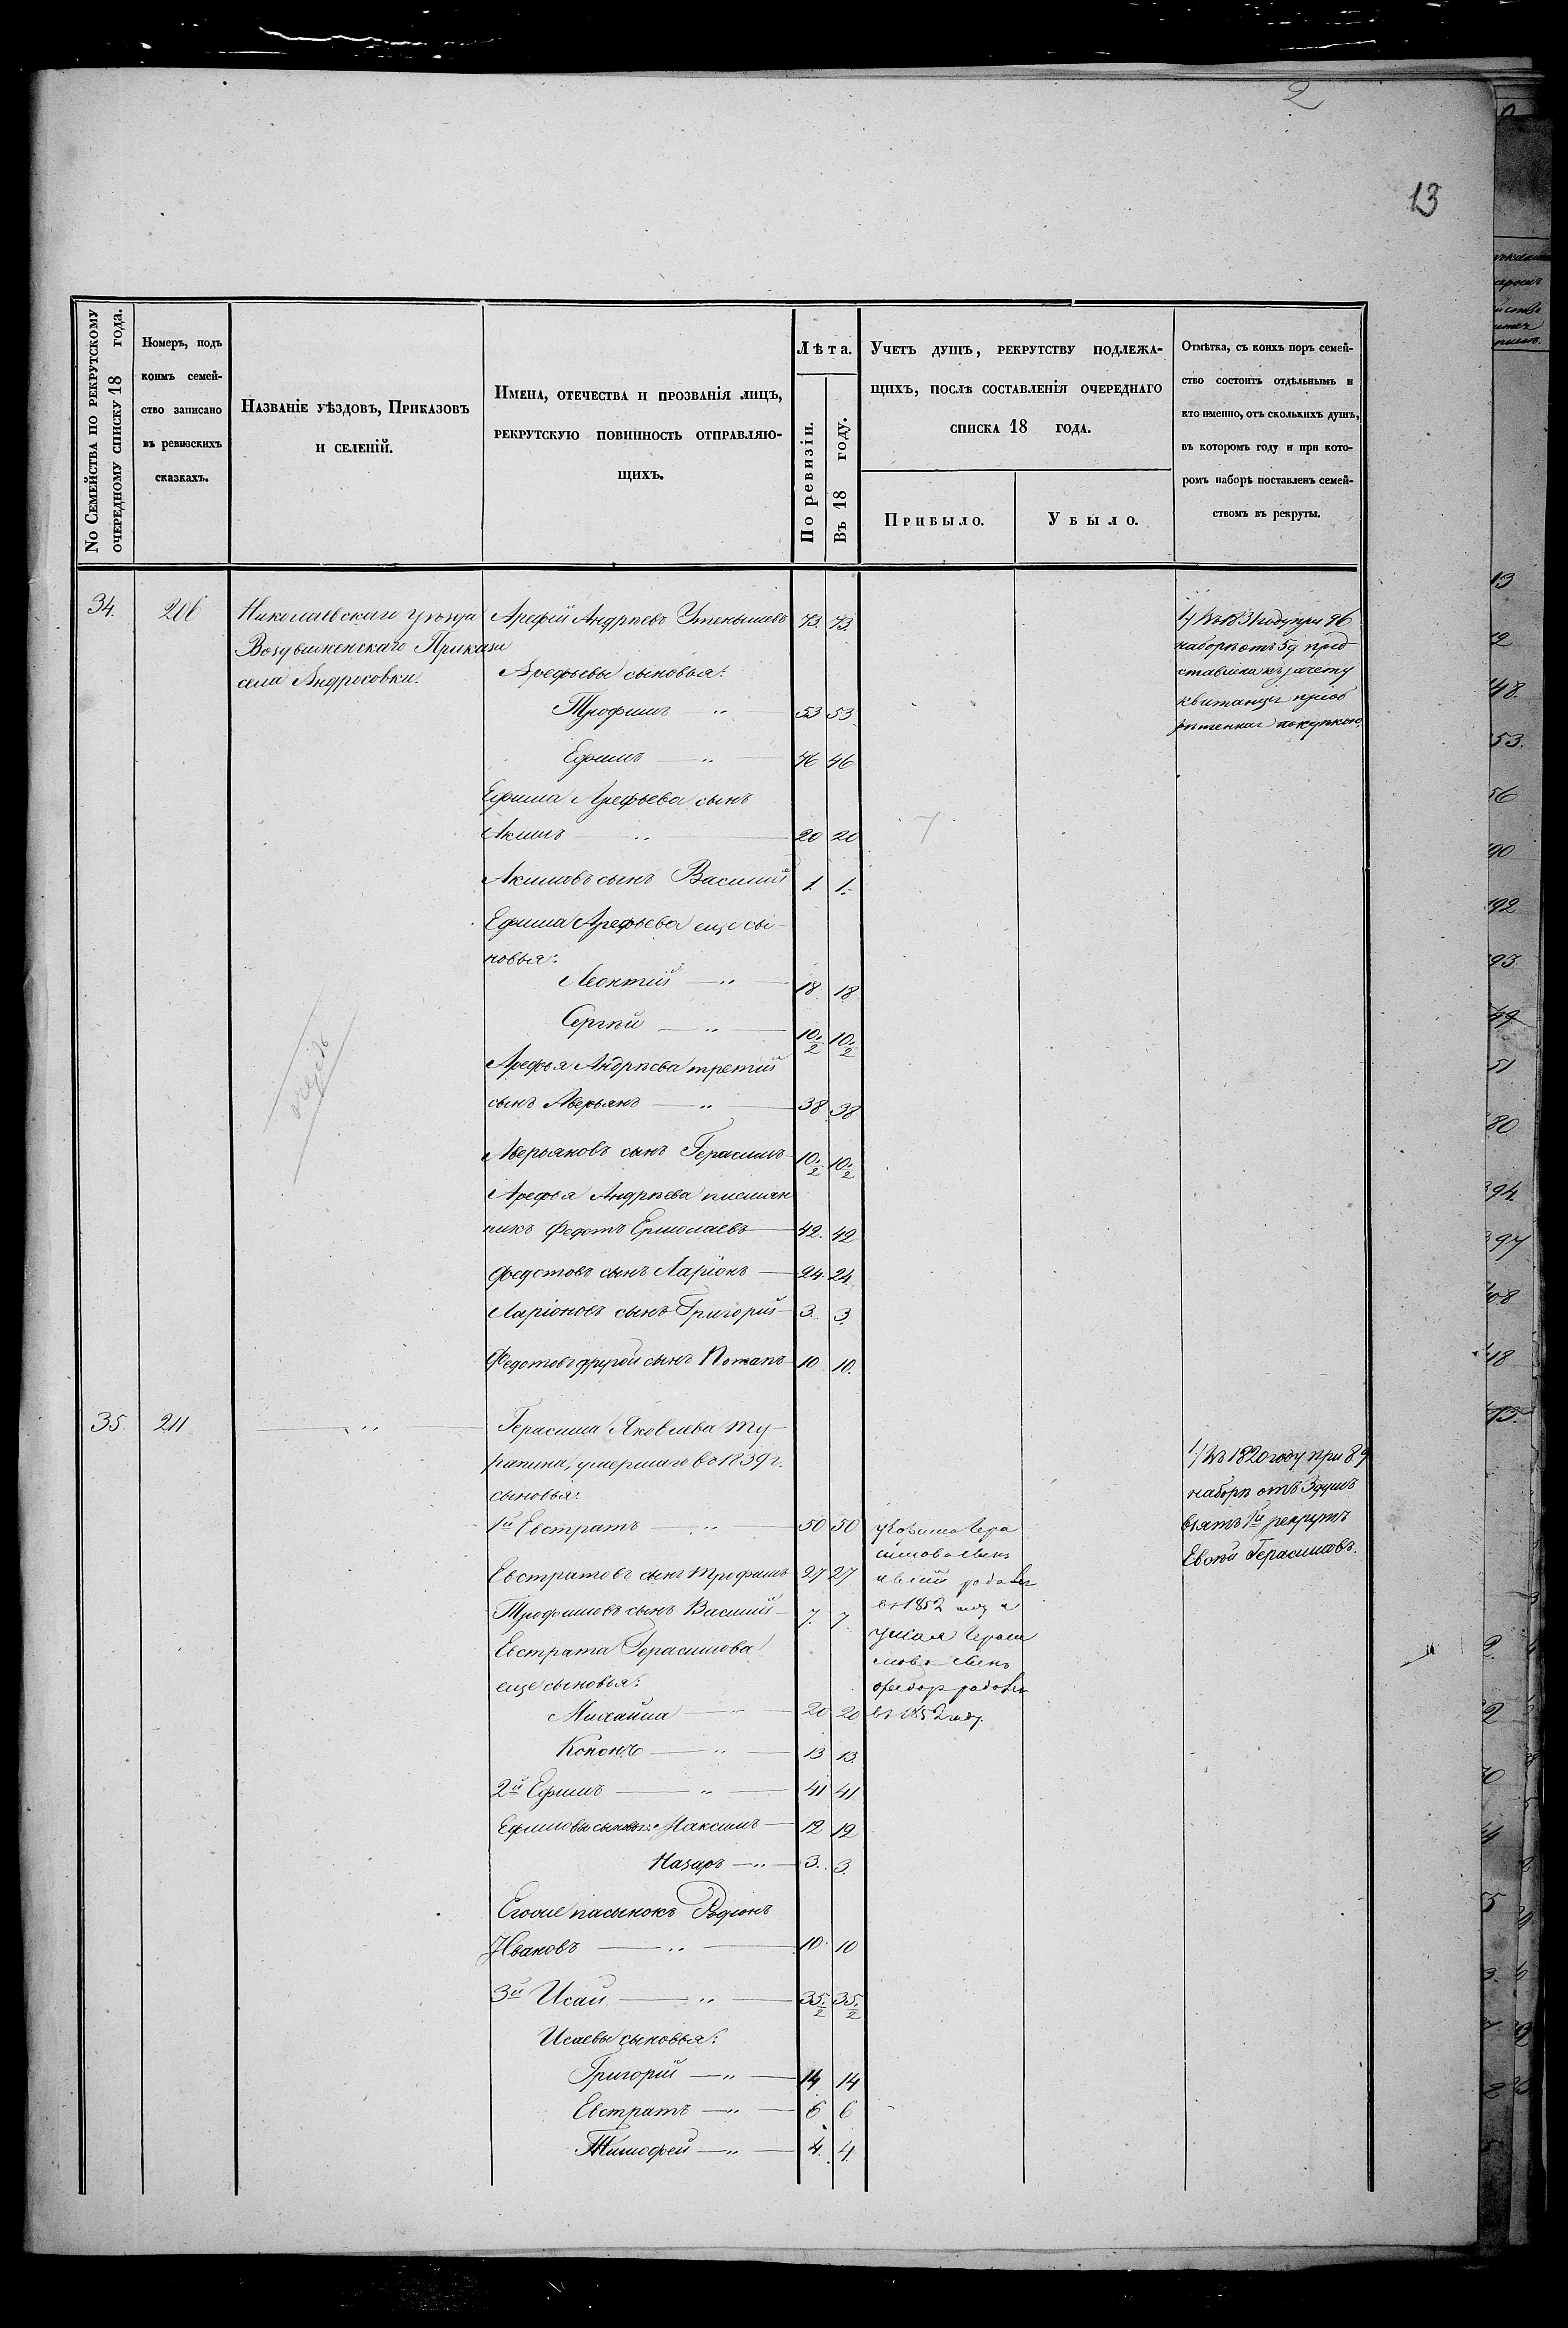 2
13
No Семейства по рекрутскому
очередному списку 18 года.
Номеръ, подъ
коимъ семей-
ство записано
въ ревизскихъ
сказкахъ.
Названіе уѣздовъ, Приказовъ
и селеній.
Имена, отечества и прозванія лицъ,
рекрутскую повинность отправляю-
щихъ.
Лѣта.
По ревизіи.
Въ 18 году.
Учетъ душъ, рекрутству подлежа-
щихъ, послѣ составленія очереднаго
списка 18 года.
Прибыло.
Убыло.
Отмѣтка, съ коихъ поръ семей-
ство состоитъ отдѣльнымъ и
кто именно, отъ сколькихъ душъ,
въ которомъ году и при кото-
ромъ наборѣ поставленъ семей-
ствомъ въ рекруты.
34.
Николаевскаго уѣзда
села Андросовки.
Арефій Андреевъ 73. 73.
Арефьевы сыновья:
Трофимъ — " 53 53.
Ефимъ — " — 46 46
Ефима Арефьева сынъ
Акимъ — " — 20 20
Акимовъ сынъ Василій 1. 1.
Ефима Арефьева еще сы-
новья:
Леонтій — " — 18 18
Сергѣй — " — 10 1/2 10 1/2
Арефья Андреева третій
сынъ Аверьянъ — " — 38 38
Аверьяновъ сынъ Герасимъ 10 1/2 10 1/2
Арефья Андреева племян
никъ Федотъ Ермолаевъ — 42. 42
Федотовъ сынъ Ларіонъ — 24. 24.
Ларіоновъ сынъ Григорій — 3. 3.
Федотовъ другой сынъ Потапъ 10 10.
1) Въ 1831 году при 96
наборѣ отъ 5 д пред
ставлена къ зачету
квитанція пріоб
рѣтенная покупкою.
35. 211 — " —
Герасима Яковлева Ту-
умершаго въ 1839 г.
сыновья:
1й Евстратъ — " — 50 50
Евстратовъ сынъ Трофимъ 27 27
Трофимовъ сынъ Василій — 7. 7.
Евстрата Герасимова
еще сыновья:
Михаила — 20 20
Кононъ — " — 13 13.
2й Ефимъ — " — 41 41
Ефимовы сыновья: Максимъ — 12 12
Назаръ — " — 3. 3.
Егоже пасынокъ Родіонъ
Ивановъ — " — 10 10
3й Исай — " — 35 1/2 35 1/2
Исаевы сыновья:
Григорій — " — 14 14
Евстратъ — " — 6 6
Тимофей — " — 4. 4.
у Ефима Гера
симова сынъ
родился
въ 1852 году и
у Исая Гераси
мова сынъ
Федоръ родился
въ 1852 году.
1) Въ 1820 году при 89
наборѣ отъ 3 душъ
взятъ 1й рекрутъ
Герасимовъ.